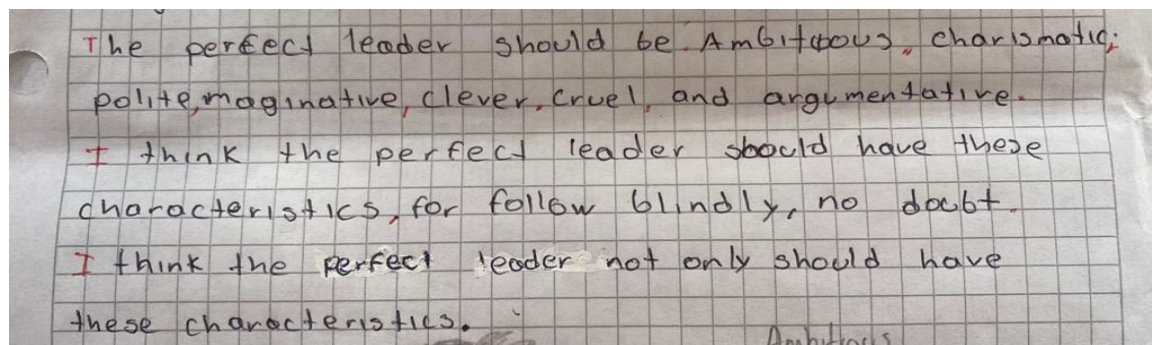 The perfect leader should be. Ambitious, charismatic,
polite, maginative, clever, cruel, and argumentative.
I think the perfect leader should have these
characteristics, for follow blindly, no doubt.
I think the perfect leader not only should have
these characteristics.